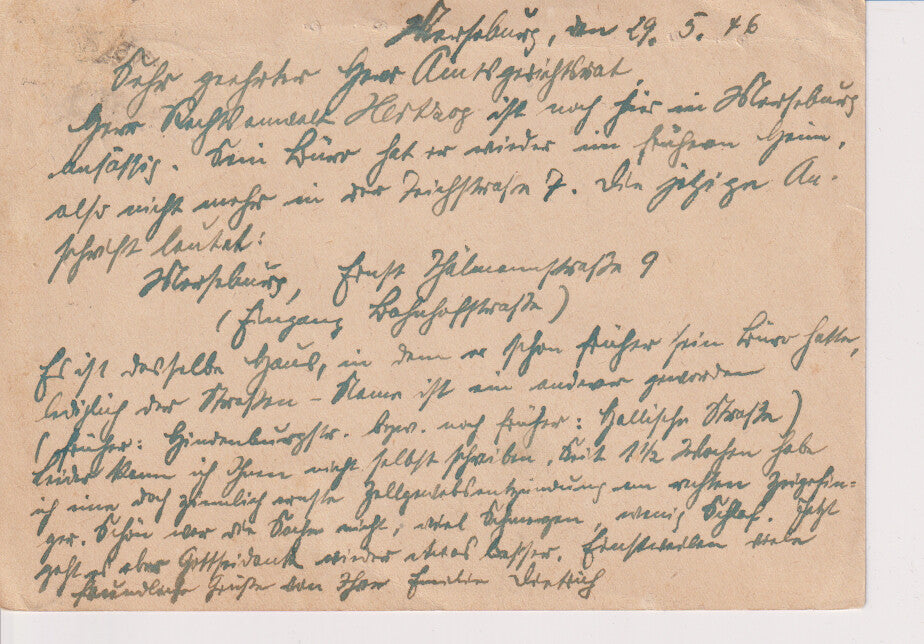 Merseburg, den 29. 5. 46
Sehr geehrter Herr Amtsgerichtsrat,
Herr Rechtsanwalt Hertzog ist noch hier in Merseburg
ansässig. Sein Büro hat er wieder im frühern Heim,
also nicht mehr in der Teichstraße 7. Die jetzige An-
schrift lautet:
Merseburg, Ernst Thälmannstraße 9
(Eingang Bahnhofstraße)
Es ist dasselbe Haus, in dem er schon früher sein Büro hatte,
lediglich der Straßen-Name ist ein anderer geworden
(früher: Hindenburgstr. bzw. noch früher: Hallische Straße)
Leider kann ich Ihnen nicht selbst schreiben. Seit 1½ Wochen habe
ich eine doch ziemlich ernste Zellgewebsentzündung am rechten Zeigefin-
ger. Schön war die Sache nicht, viel Schmerzen, wenig Schlaf. Jetzt
geht es aber Gottseidank wieder etwas besser. Einstweilen viele
freundliche Grüße von Ihrer Familie Dietrich